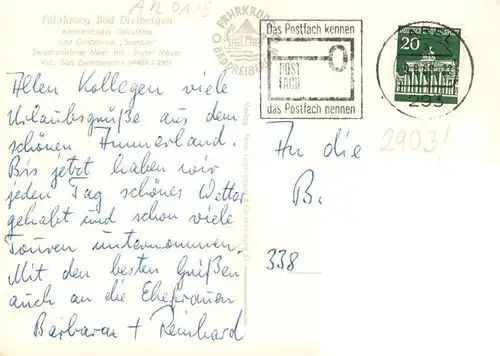 AK 0115
Fährkrug Bad Dreibergen
Ammerländer Gaststätte
und Gästehaus „Seerose"
Zwischenahner Meer, Inh. Dieter Meyer
FÄHRKROOG
BAD DREIBERGEN
Das Postfach kennen
POST
FACH
das Postfach nennen
20
293
2903!
Allen Kollegen viele
Urlaubsgrüße aus dem
schönen Ammerland.
Bis jetzt haben wir
jeden Tag schönes Wetter
gehabt und schon viele
Touren unternommen.
Mit den besten Grüßen
auch an die Ehefrauen
Barbara + Reinhard
An die
B.
338